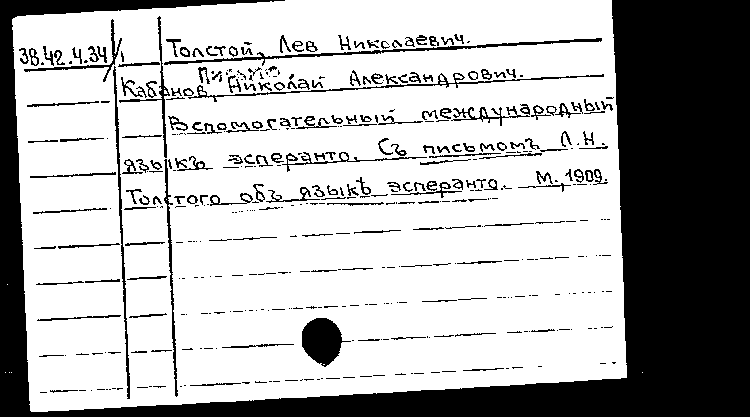 38.42.4.34/1 Толстой, Лев Николаевич.
Письмо
Кабанов, Николай Александрович.
Вспомогательный международный
языкъ эсперанто. Съ письмомъ Л.Н.
Толстого объ языкѣ эсперанто. М., 1909.